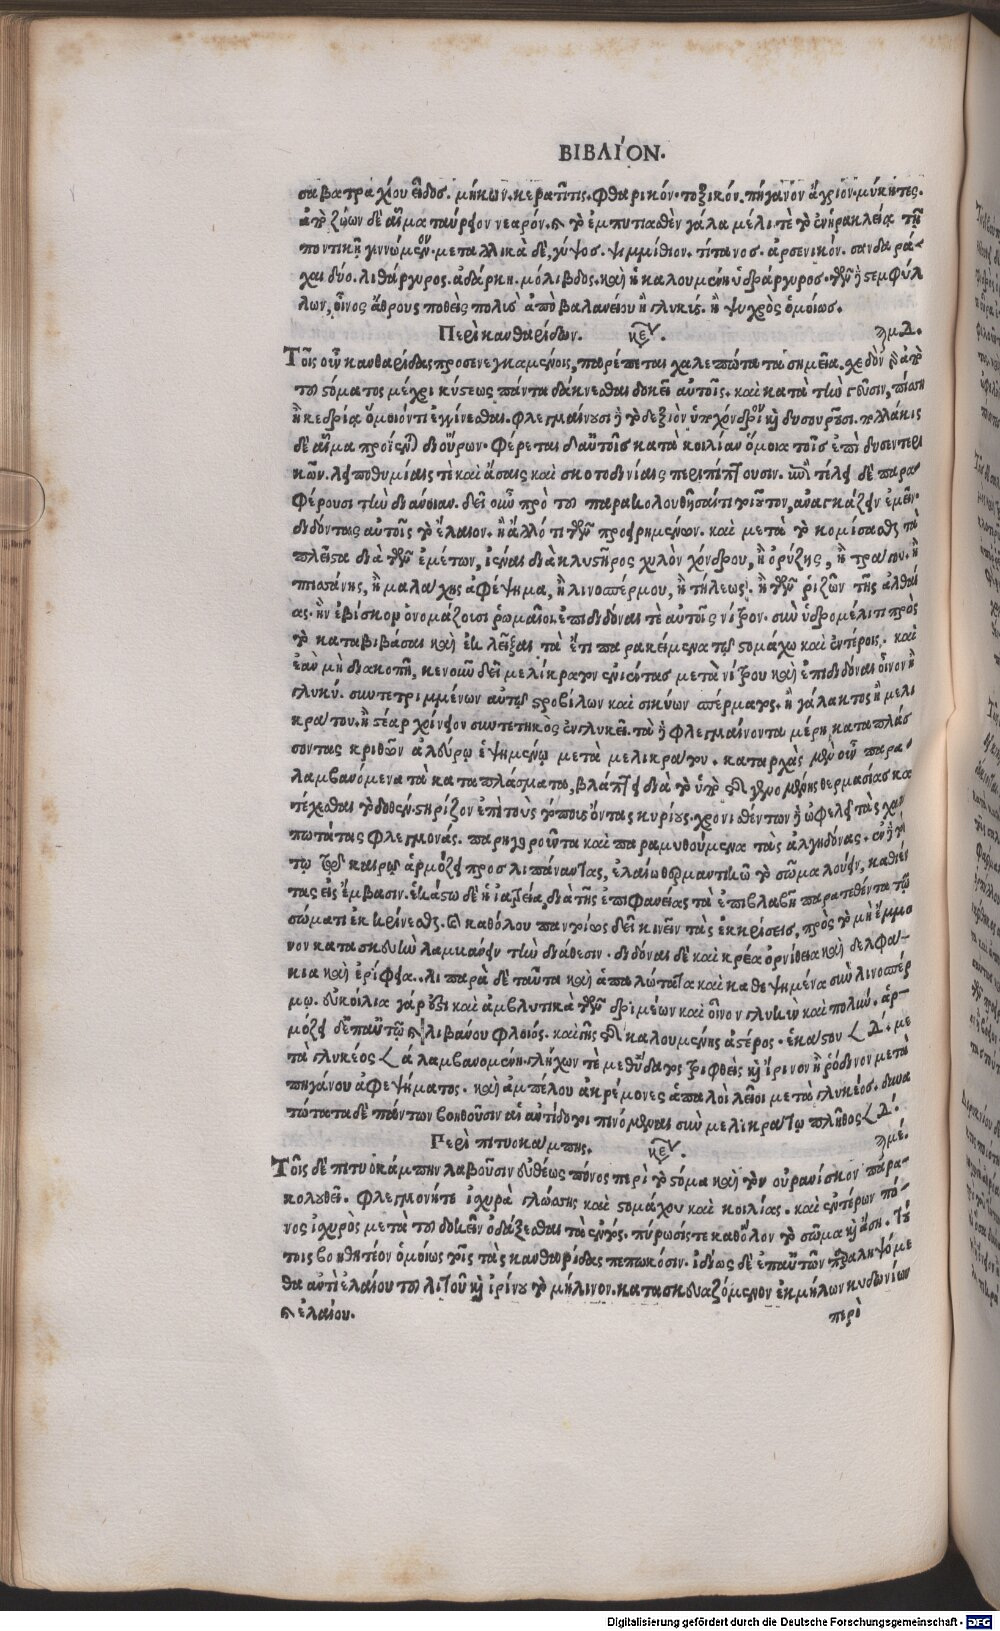 ΒΙΒΛΙΌΝ.
σα βατραχίου εἶδος. μήκων. κερατῖτις. φθαρικόν. τοξικόν. πήγανον ἄγριον. μύκητες.
ἀπὸ ζώων δὲ αἷμα ταύρειον νεαρόν. καὶ τὸ ἐμπυτιασθὲν γάλα μέλι τὲ τὸ ἐν ἡρακλείᾳ τῇ
ποντικῇ γεννώμενον. μεταλλικὰ δὲ, γύψος. ψιμμίθιον. τίτανος. ἀρσενικόν. σανδαρά-
χαι δύο. λιθάργυρος. ἀδάρκη. μόλιβδος. καὶ ἡ καλουμένη ὑδράργυρος. τῶν δὲ στεμφύλ
λων, οἶνος ἄθρους ποθεὶς πολὺς ἀπὸ βαλανείου ἢ γλυκύς. ἢ ψυχρὸς ὁμοίως.
Περὶ κανθαρίδων. κεφ. α.
Τοῖς οὖν κανθαρίδας προσενεγκαμένοις, παρέπεται χαλεπώτατα σημεῖα. σχεδὸν γὰρ ἀπὸ
τοῦ στόματος μέχρι κύστεως πάντα δάκνεσθαι δοκεῖ αὐτοῖς. καὶ κατὰ τὴν γεῦσιν, πίσσῃ
ἢ κεδρίᾳ ὅμοιόν τι ἐγγίνεσθαι. φλεγμαίνουσι δὲ τὸ δεξιὸν ὑποχόνδριον καὶ δυσουροῦσι. πολλάκις
δὲ αἷμα προΐενται δι οὔρων. φέρεται δ' αὐτοῖς κατὰ κοιλίαν ὅμοια τοῖς ἐπὶ δυσεντερι
κῶν. λειποθυμίαις τὲ καὶ ἄσαις καὶ σκοτοδινίαις περιπίπτουσιν. ἐπὶ τέλει δὲ παρα
φέρουσι τὴν διάνοιαν. δεῖ οὖν πρὸ τοῦ παρακολουθῆσαί τι τοιοῦτον, ἀναγκάζειν ἐμεῖν.
διδόντας αὐτοῖς τὸ ἔλαιον. ἢ ἄλλό τι τῶν προειρημένων. καὶ μετὰ τὸ κομίσασθαι τὰ
πλεῖστα διὰ τῶν ἐμέτων, ἐνιέναι διὰ κλυστῆρος χυλὸν χόνδρου, ἢ ὀρύζης, ἢ τράγου. ἢ
πτισάνης, ἢ μαλάχης ἀφέψημα, ἢ λινοσπέρμου, ἢ τήλεως. ἢ τῶν ῥιζῶν τῆς ἀλθαί
ας. ἣν ἐβίσκον ὀνομάζουσι ῥωμαῖοι. ἐπιδιδόναι τὲ αὐτοῖς νίτρον. σὺν ὑδρομέλιτι πρὸς
τὸ καταβιβάσαι καὶ ἐκλεῖξαι τὰ ἔτι παρακείμενα τῷ στομάχῳ καὶ ἐντέροις. καὶ
ἐὰν μὴ διακοπῇ, κενοῦν δεῖ μελίκρατον ἐνιέντας μετὰ νίτρου καὶ ἐπιδιδόναι οἶνον ἢ
γλυκύ. συντετριμμένων αὐτῷ στροβίλων καὶ σικύων σπέρματος. ἢ γάλακτος ἢ μελι
κράτου. ἢ στέαρ χήνειον συντετηκὸς ἐν γλυκεῖ. τὰ δὲ φλεγμαίνοντα μέρη καταπλάσ
σοντας κριθῶν ἀλεύρῳ ἑψημένῳ μετὰ μελικράτου. καταρχὰς μὲν οὖν παρα-
λαμβανόμενα τὰ καταπλάσματα, βλάπτει διὰ τὸ ὑπὸ τῆς γινομένης θερμασίας κα
τέχεσθαι τὸ δοθὲν. στηρίζον ἐπὶ τοὺς τόπους ὄντας κυρίους. χρονισθέντων δὲ ὠφελεῖ τὰς χαλε
πωτάτας φλεγμονάς. παρηγοροῦντα καὶ παραμυθούμενα τὰς ἀλγηδόνας. ἐν δὲ
τῷ καιρῷ ἁρμόζει προσλιπάναντας, ἐλαίῳ θερμαντικῷ τὸ σῶμα λούειν, καθιέν
τας εἰς ἔμβασιν. ἑκάστῳ δὲ ἡ ἰατρεία, διὰ τῆς ἐπιφανείας τὰ ἐπιβλαβῆ παρατεθέντα τῷ
σώματι ἐκκρίνεσθαι. καὶ καθόλου παντοίως δεῖ κινεῖν τὰς ἐκκρίσεις, πρὸς τὸ μὴ ἔμμο
νον κατασκευὴν λαμβάνειν τὴν διάθεσιν. διδόναι δὲ καὶ κρέα ὀρνίθεια καὶ δελφά-
κια καὶ ἐρίφεια. λιπαρὰ δὲ ταῦτα καὶ ἁπαλώτατα καὶ καθεψημένα σὺν λινοσπέρ
μῳ. εὐκοίλια γάρ ἐστι καὶ ἀμβλυτικὰ τῶν δριμέων καὶ οἶνον γλυκὺν καὶ πολύν. ἁρ-
μόζει δὲ ἐπ' αὐτῷ καὶ λιβάνου φλοιός. καὶ γῆς τῆς καλουμένης ἀστέρος. ἑκάστου 𐅻 δ. με
τὰ γλυκέος 𐅻 ά λαμβανομένη. γλήχων τὲ μεθ' ὕδατος τριφθεὶς καὶ ἴρινον ἢ ῥόδινον μετὰ
πηγάνου ἀφεψήματος. καὶ ἀμπέλου ἀκρέμονες ἁπαλοὶ λεῖοι μετὰ γλυκέος. δυνα
τώτατα δὲ πάντων βοηθοῦσιν αἱ ἀντίδοτοι πινόμεναι σὺν μελικράτῳ πλῆθος 𐅻 δ.
Περὶ πιτυοκάμπης. κεφ. β.
Τοῖς δὲ πιτυοκάμπην λαβοῦσιν εὐθέως πόνος περὶ τὸ στόμα καὶ τὸν οὐρανίσκον παρα-
κολουθεῖ. φλεγμονή τε ἰσχυρὰ γλώσσης καὶ στομάχου καὶ κοιλίας. καὶ ἐντέρων πό-
νος ἰσχυρὸς μετὰ τοῦ δοκεῖν ὀδάξεσθαι τὰ ἐντός. πύρωσίς τε καθ' ὅλον τὸ σῶμα καὶ ἄση. τού
τοις βοηθητέον ὁμοίως τοῖς τὰς κανθαρίδας πεπωκόσιν. ἰδίως δὲ ἐπ' αὐτῶν παραληψόμε
θα ἀντὶ ἐλαίου τοῦ λιτοῦ καὶ ἰρίνου τὸ μήλινον. κατασκευαζόμενον ἐκ μήλων κυδωνίων
καὶ ἐλαίου. περὶ
Digitalisierung gefördert durch die Deutsche Forschungsgemeinschaft - DFG